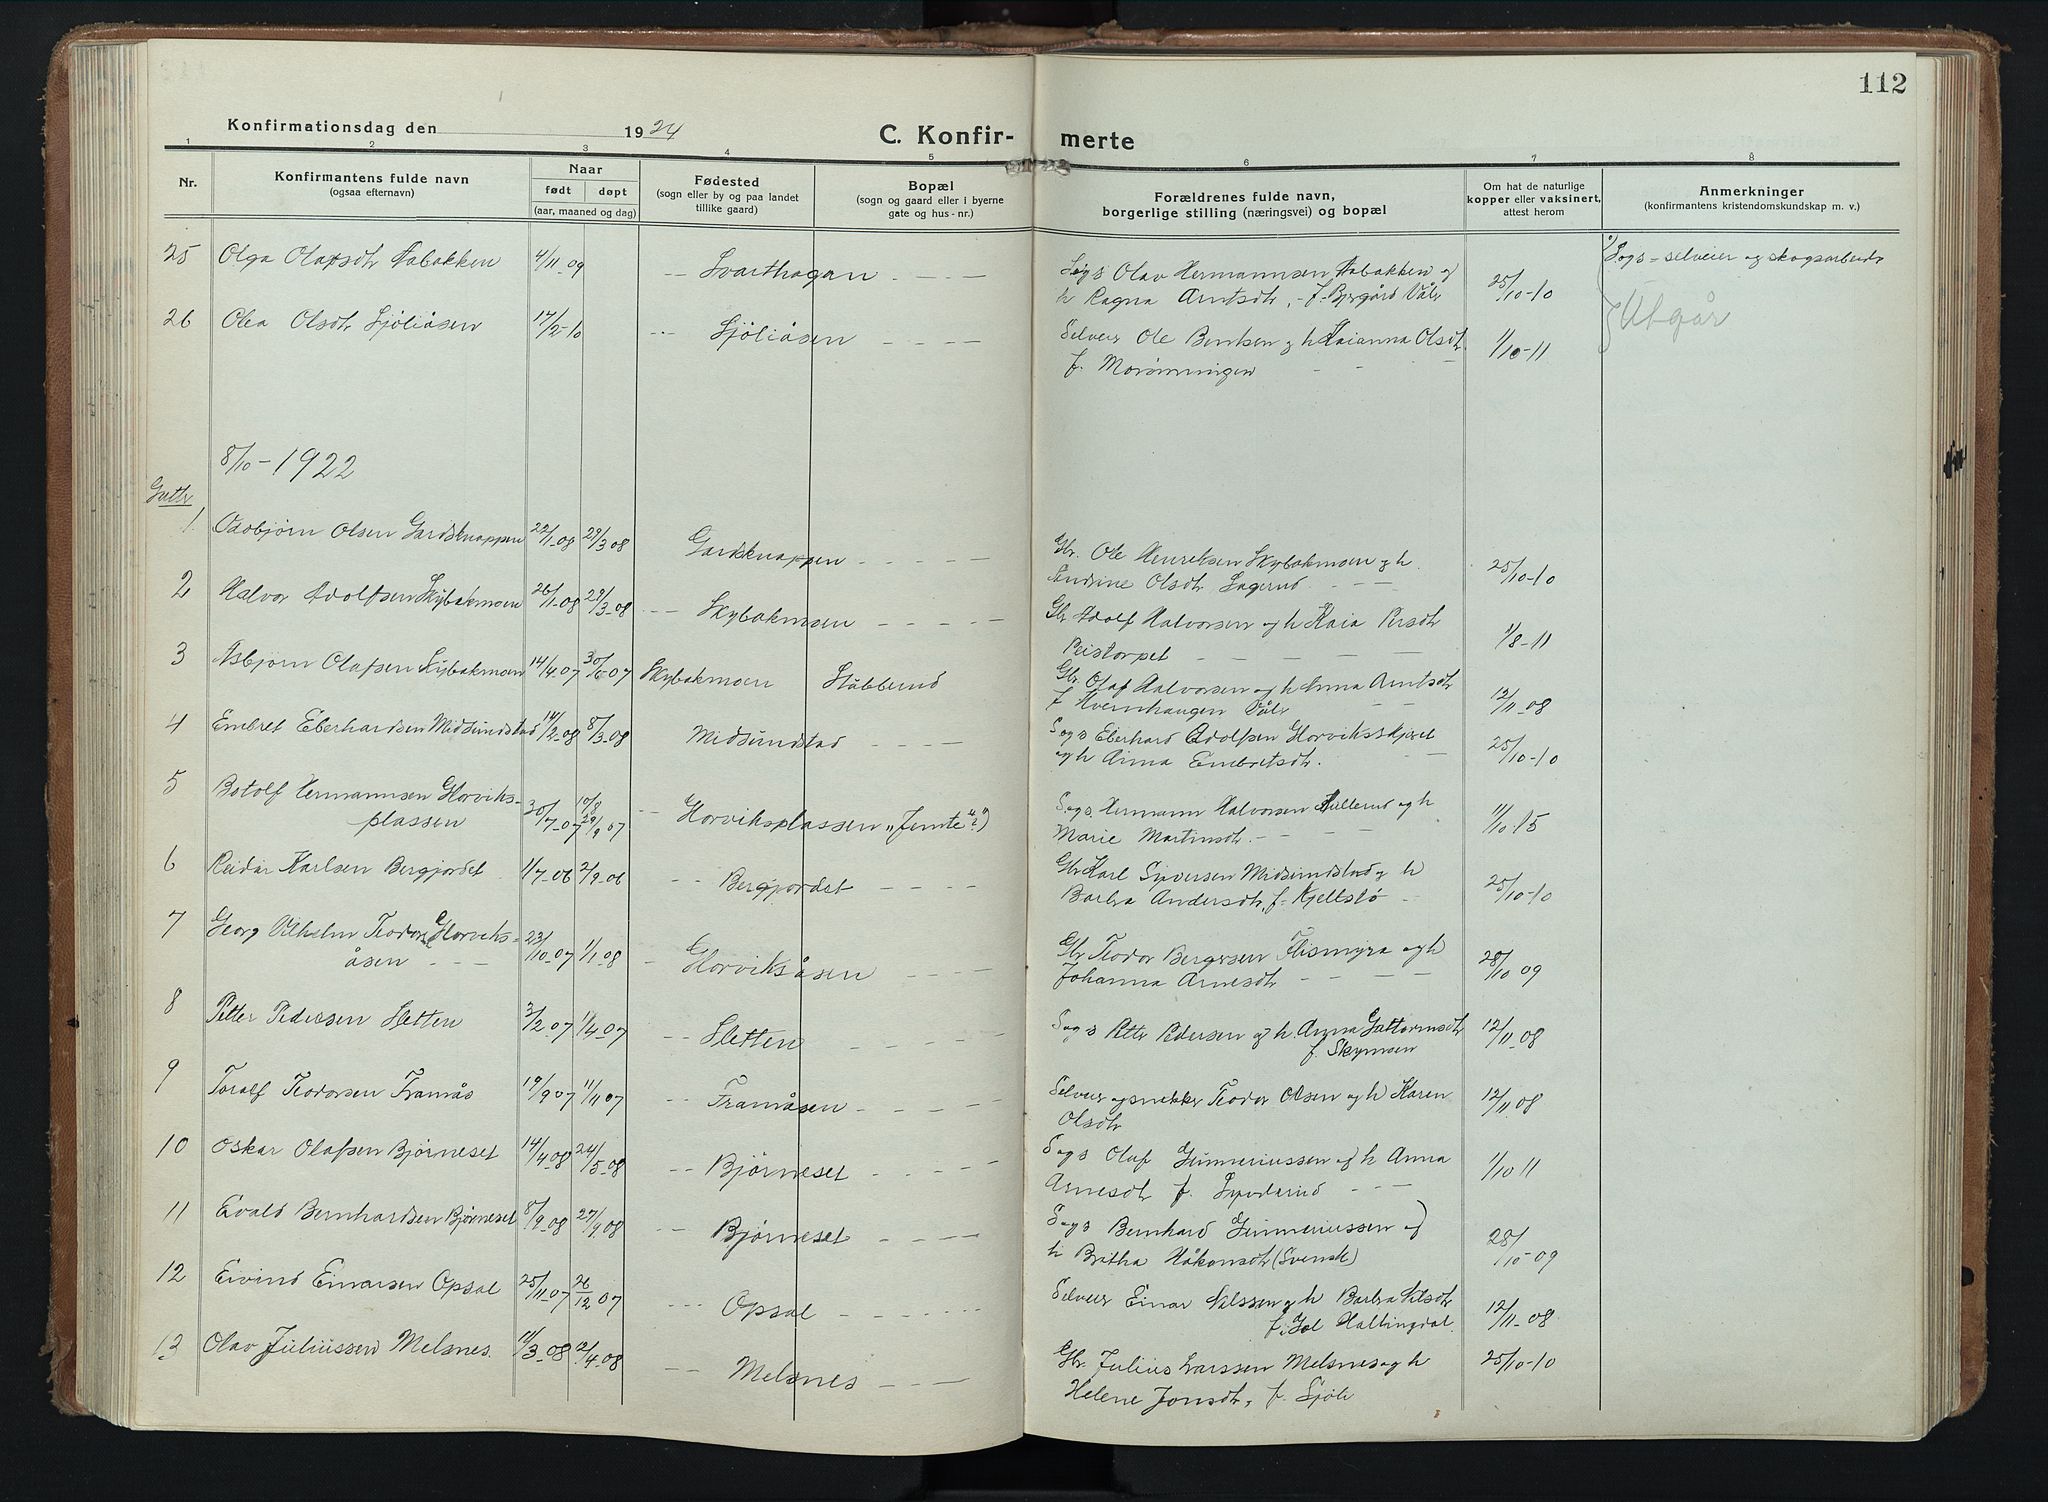 112
Konfirmationsdag den 1924 C. Konfir- merte
1 2 3 4 5 6 7 8
Nr. Konfirmantens fulde navn (ogsaa efternavn) Naar født døpt (aar, maaned og dag) Fødested (sogn eller by og paa landet tillike gaard) Bopæl (sogn og gaard eller i byerne gate og hus-nr.) Forældrenes fulde navn, borgerlige stilling (næringsvei) og bopæl Om hat de naturlige kopper eller vaksinert, attest herom Anmerkninger (konfirmantens kristendomskundskap m. v.)
25 Olga Olafsdtr Aabakken 4/11-09 -- Svarthagan - - - - Sogs Olav Hermannsen Aabakken og 25/10-10 Sogs = selveier og skogsarbeider
h Ragna Arntsdtr, - f. Bergård Våler
26 Olea Olsdtr Sjøliåsen 17/2-10 --- Sjøliåsen - - - - Selveier Ole Berntsen og h Kaianna Olsdtr 1/10-11 Utgår
f. Morønningen - - -
8/10-1922
Gutter
1 Oddbjørn Olsen Gardsknappen 22/1-08 29/3 08 Gardknappen - - - - - Gbr. Ole Henriksen Skybakmoen og h. 25/10-10
Andrine Olsdtr Lagerud - - -
2 Halvor Adolfsen Skybakmoen 26/1-08 29/3-08 -- Skybakmoen - - - - - Gbr Adolf Halvorsen og h Kaia Persdtr 1/8-11
Reistorpet - - - - -
3 Asbjørn Olafsen Skybakmoen 14/4.07 30/6-07 Skybakmoen Stubberud Gbr. Olaf Halvorsen og h Anna Arntsdtr 12/11-08
f Hvernhaugen Våler - -
4 Embret Eberhardsen Midsundstad 14/2-08 8/3-08 Midsundstad - - - - Sogs Eberhard Adolfsen Horviksskjæret 25/10-10
og h Anna Embretsdtr. -
5 Botolf Hermannsen Horviks- 30/7-07 10/8 29/9 07 -- Horviksplassen „Jemte"?) Sogs. Hermann Halvorsen Hullerud og h 11/10-15
plassen Marie Martinsdtr. - - - -
6 Reidar Karlsen Bergjordet 1/7-06 2/9-06 -- Bergjordet - - - - Gbr Karl Syversen Midsundstad og h 25/10-10
Barbra Andersdtr, f. Kjellstø -
7 Georg Vilhelm Teodors. Horviks- 23/10-07 1/1-08 - Horviksåsen - - - - Gbr Teodor Bergersen Flismyra og h 28/10 09
åsen - - - Johanna Arnesdtr - - - -
8 Petter Pedersen Sletten 3/2-07 1/4-07 -- Sletten - - - - Sogs Petter Pedersen og h. Anna Guttormsdtr 12/11-08
f. Skymoen
9 Toralf Teodorsen Framås 19/9 07 11/11 07 -- Framåsen - - - - Selveier og snekker Teodor Olsen og h Karen 12/11 08
Olsdtr
10 Oskar Olafsen Bjørneset 14/4-08 24/5-08 -- Bjørneset - - - - - Sogs Olaf Gunneriussen og h Anna 1/10 11
Arnesdtr f. Syvderud - - -
11 Evald Bernhardsen Bjørneset 8/9-08 27/9.08 -- Bjørneset - - - - Sogs Bernhard Gunneriussen og 28/10-09
h Britha Håkonsdtr (Svensk)
12 Eivind Einarsen Opsal 25/11-07 26/12 07 --- Opsal - - - - - Selveier Einar Nilssen og h Barbra Nilsdtr 12/11-08
f. i Gol Hallingdal
13 Olav Juliussen Melsnes. 11/3-08 12/4.08 -- Melsnes - - - Gbr. Julius Larssen Melsnes og h 25/10-10
Helene Jonsdtr, f. Sjøli